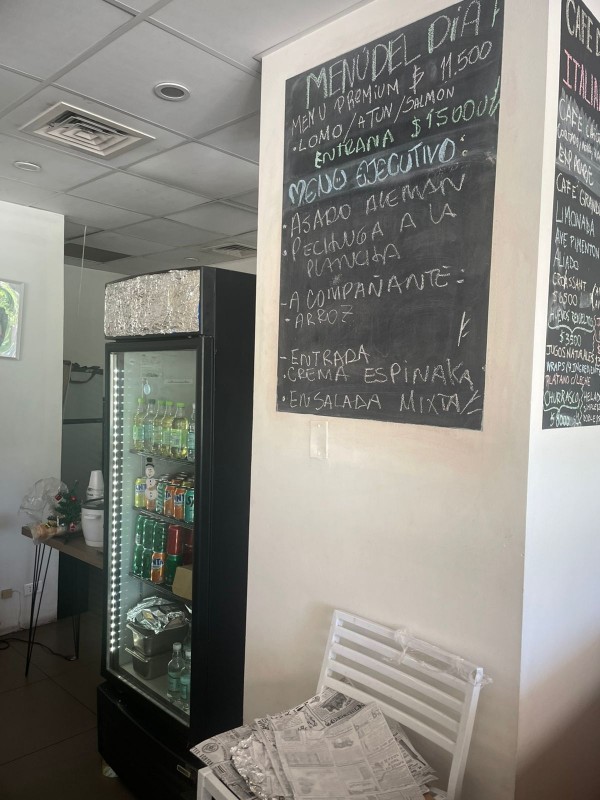 MENÚ DEL DÍA
MENU PREMIUM $ 11.500
• LOMO / ATUN / SALMON
ENTRAÑA $15000
MENÚ EJECUTIVO:
• ASADO ALEMAN
• PECHUGA A LA
PLANCHA
- ACOMPAÑANTE:
- ARROZ
- ENTRADA
• CREMA ESPINAKA
• ENSALADA MIXTA
CAFE
ITALIA
CAFE
CAFÉ GRAND
LIMONADA
AVE PIMENTON
ALIADO
CROISSANT
$6500
HUEVOS REVUELTOS
$3500
JUGOS NATURALES
WRAPS
PLATANO C/LECHE
CHURRASCO
$8000